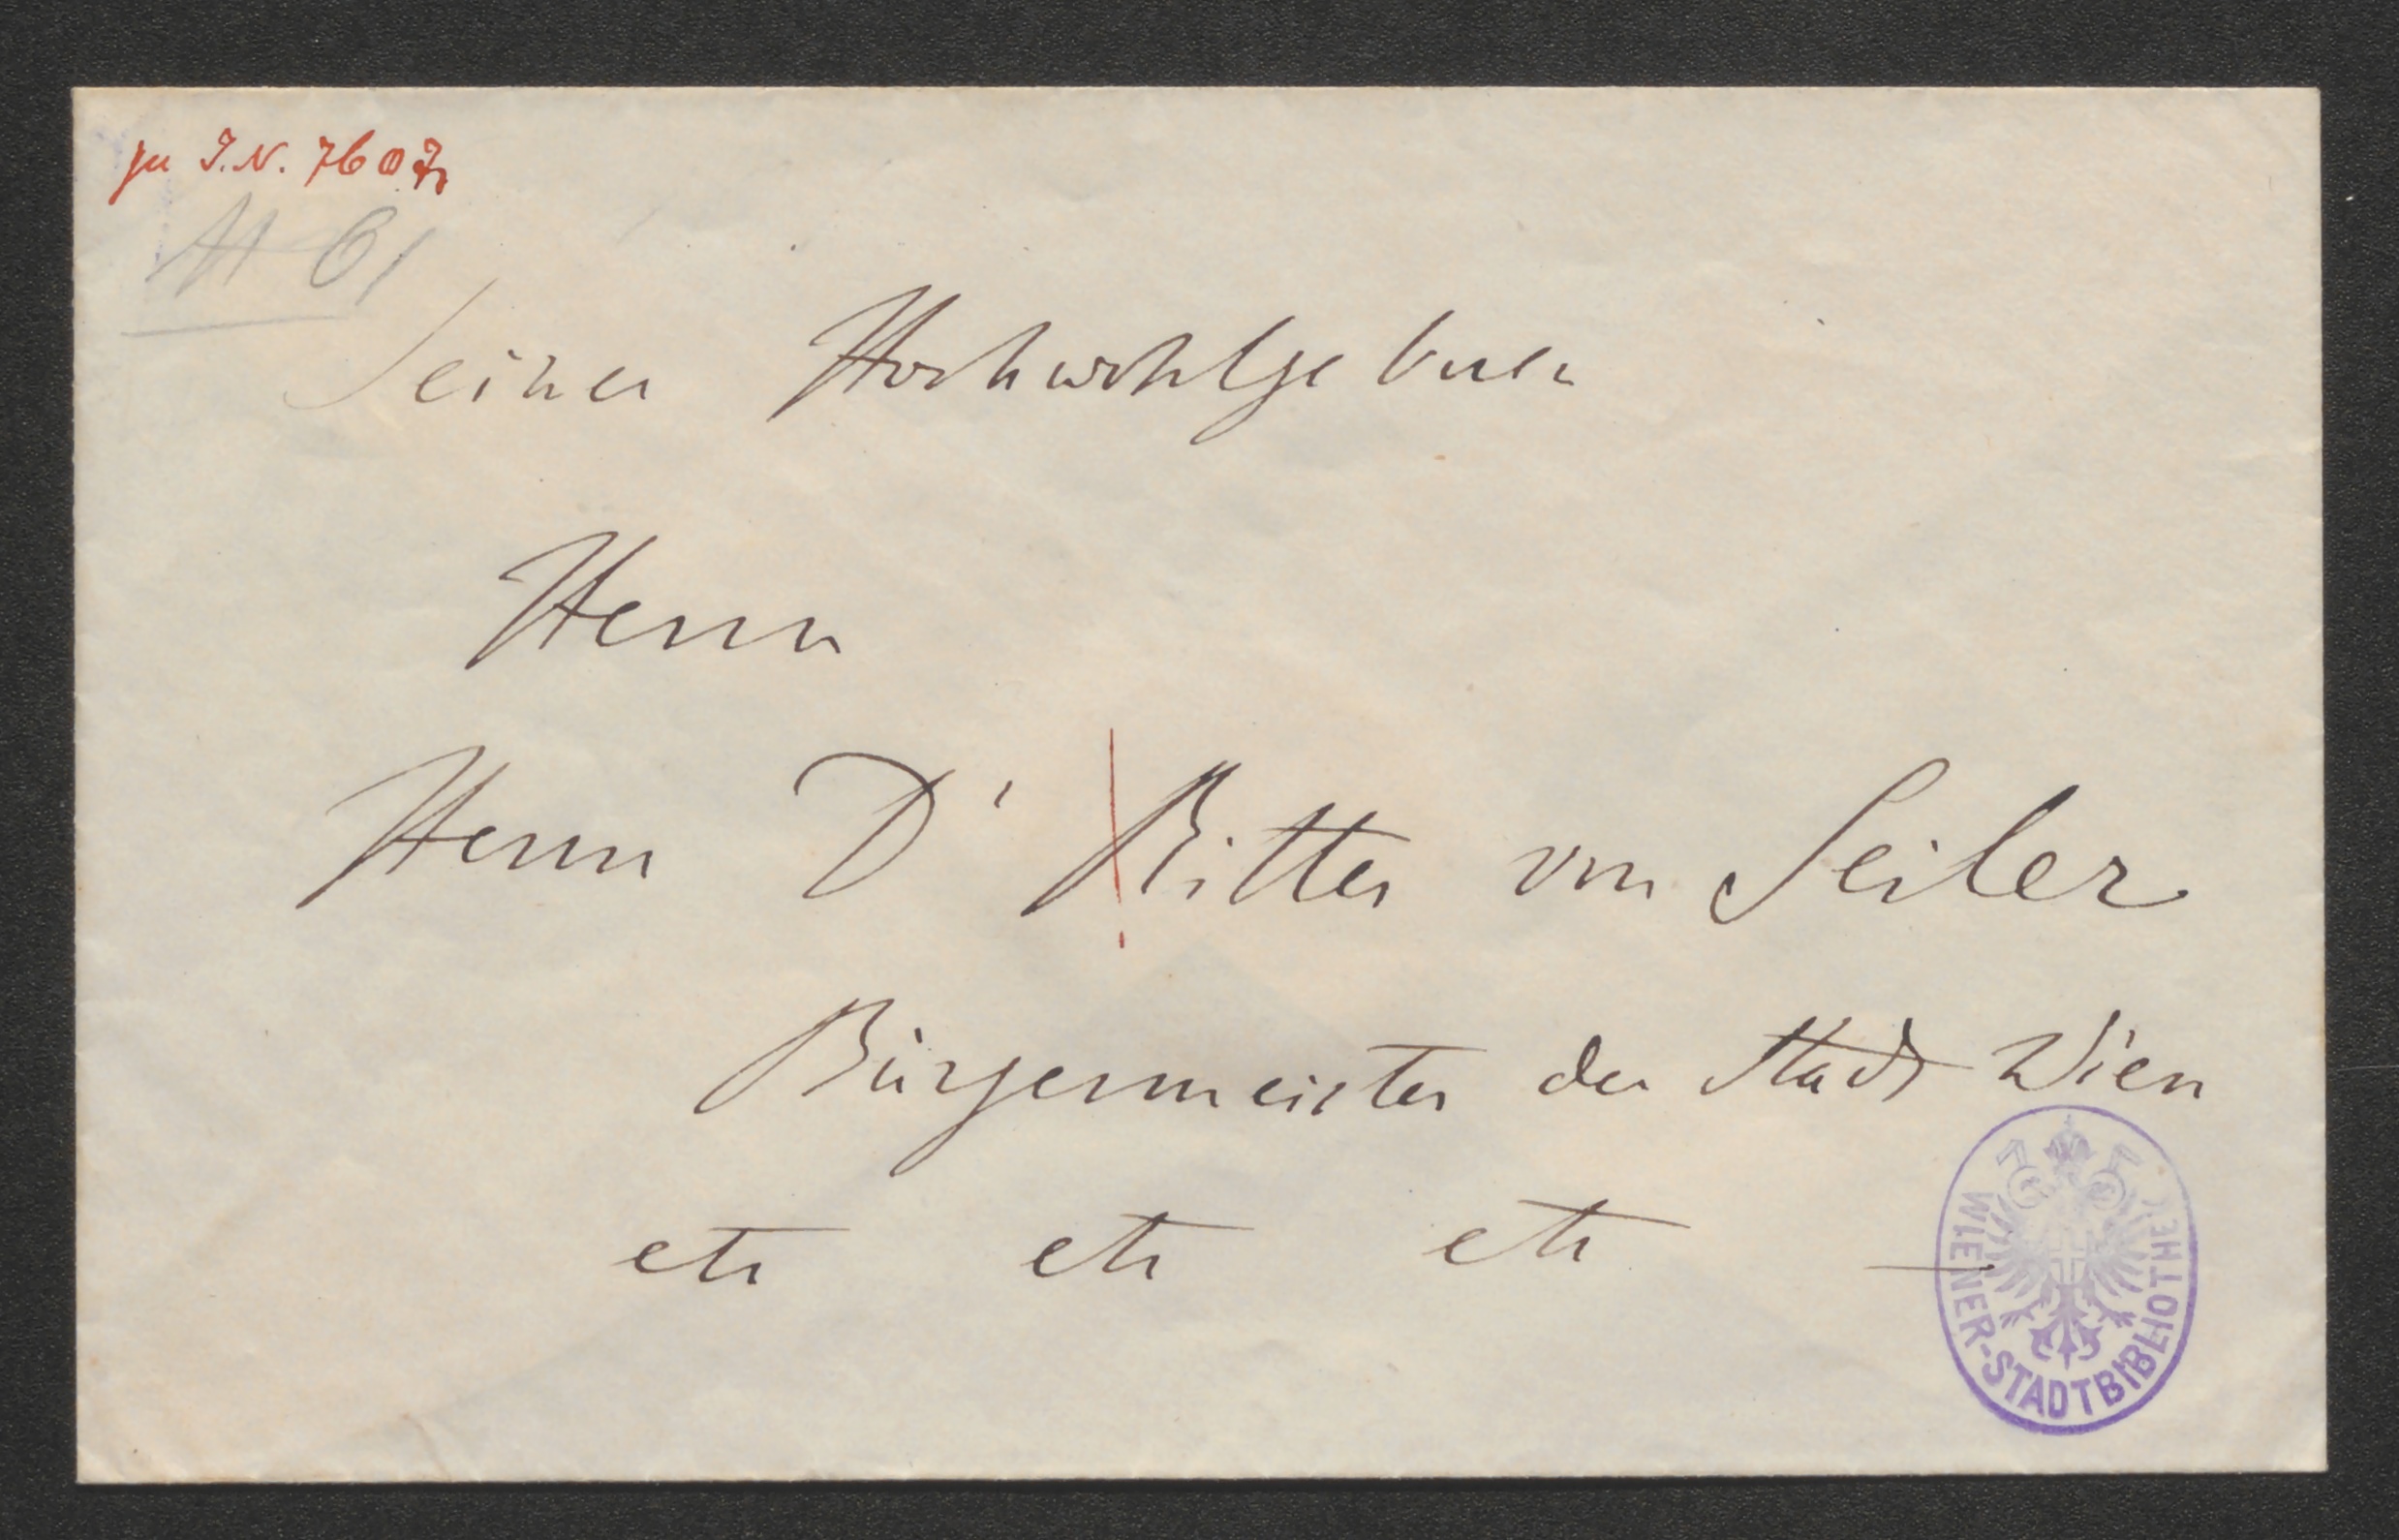 zu I.N. 7607
A 61
Seiner Hochwohlgeboren
Herrn
Herrn Dr Ritter von Seiler
Bürgermeister der Stadt Wien
etc etc etc
WIENER-STADTBIBLIOTHEK